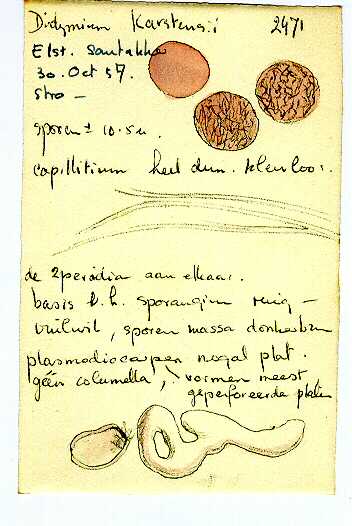 Didymium Karstensii 2471
Elst. Santakker
30. Oct 57.
stro -
sporen ± 10.5 u.
capillitium heel dun. kleurloos.
de 2 peridia aan elkaar.
basis v.h. sporangium ruig -
vuilwit, sporen massa donkerbruin
plasmodiocarpen nogal plat.
géén columella, vormen meest
geperforeerde platen